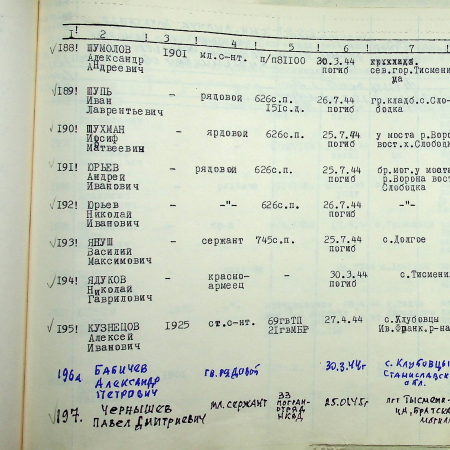 1! 2 ! 3 ! 4 ! 5 ! 6 ! 7 !
188! ШУМОЛОВ 1901 мл.с-нт. п/п81100 30.3.44
Александр погиб сев.гор.Тисмени
Андреевич ца
189! ШУПЬ - рядовой 626с.п. 26.7.44 гр.кладб.с.Сло-
Иван 151с.д. погиб. бодка
Лаврентьевич
190! ШУХМАН - ярдовой 626с.п. 25.7.44 у моста р.Воро
Иосиф погиб вост.х.Слободк
Матвеевич
191! ЮРЬЕВ - рядовой 626с.п. 25.7.44 бр.мог.у моста
Андрей погиб р.Ворона вост
Иванович Слободка
192! Юрьев - -"- 626с.п. 26.7.44 -"-
Николай погиб
Иванович
193! ЯНУШ - сержант 745с.п. 25.7.44 с.Долгое
Василий погиб
Максимович
194! ЯДУКОВ - красно- - 30.3.44 с.Тисмени
Николай армеец погиб
Гаврилович
195! КУЗНЕЦОВ 1925 ст.с-нт. 69гвТП 27.4.44 с.Клубовцы
Алексей 21гвМБР Ив.Франк.р-на
Иванович
196а БАБИЧЕВ гв.рядовой 30.3.44г с.Клубовцы
Александр Станиславск
Петрович обл.
197. Чернышев мл.сержант 33 25.01.45г. пгт Тысмени-
Павел Дмитриевич погран- ца, братска
отряд могила
НКВД